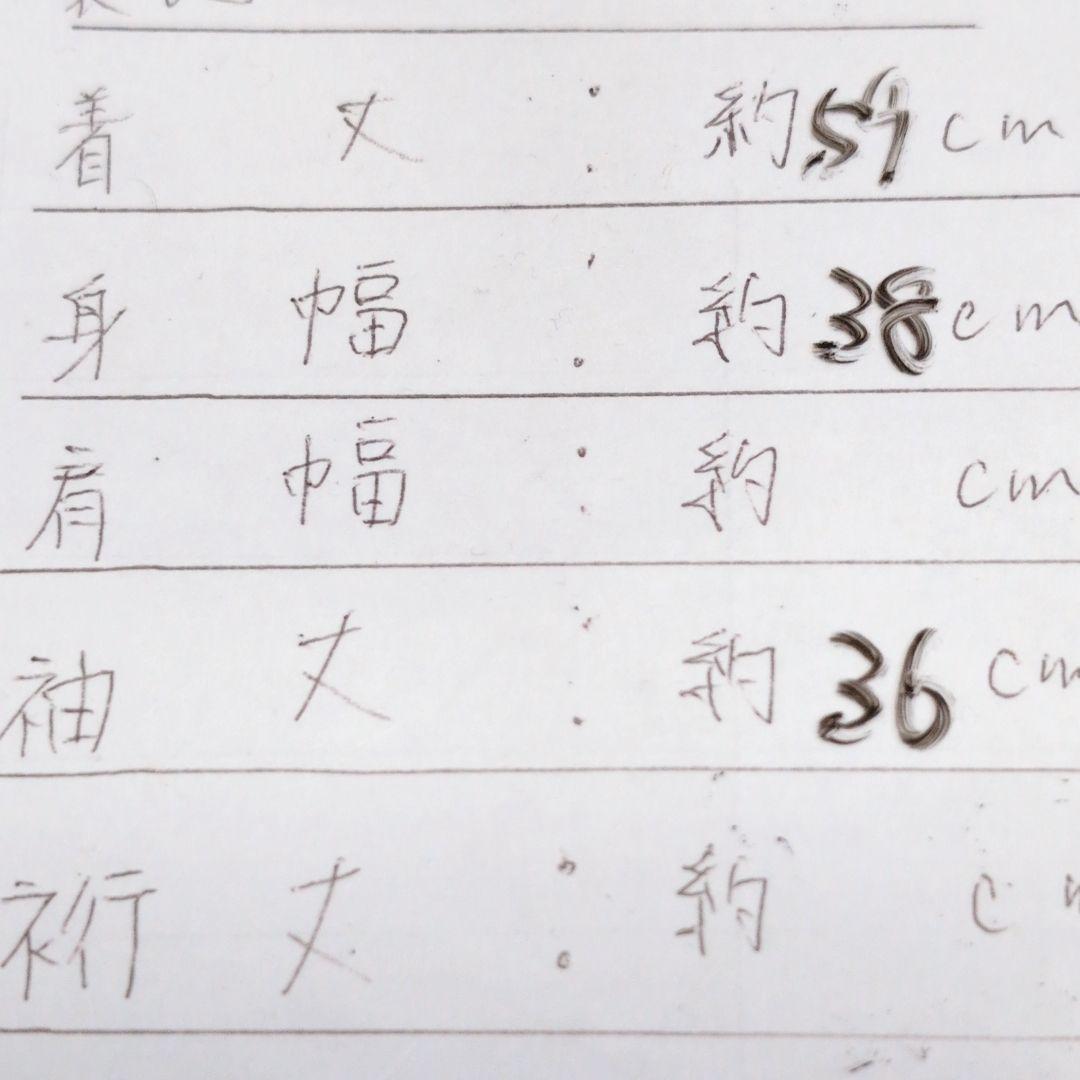 着丈：約59cm
身幅：約38cm
肩幅：約　cm
袖丈：約36cm
裄丈：約　c